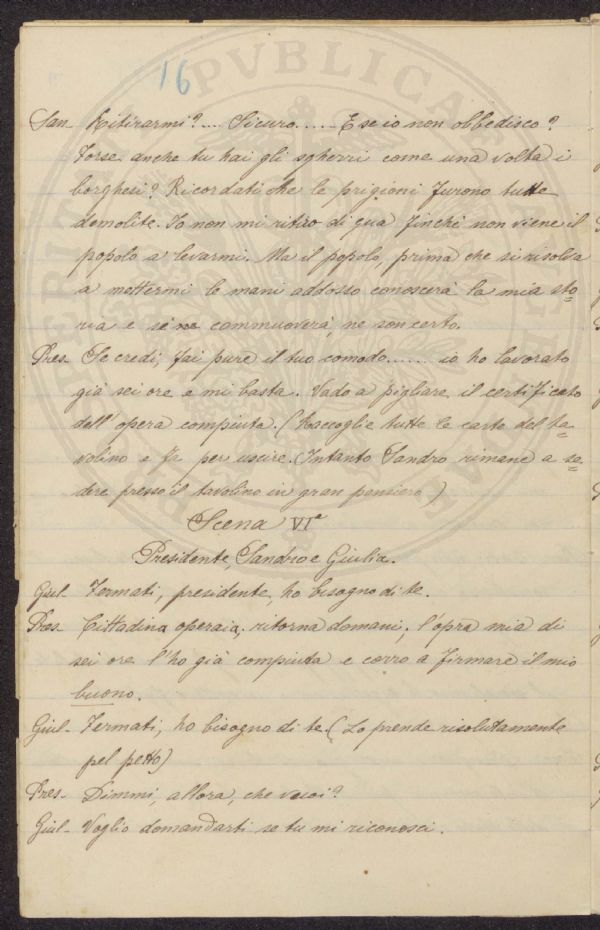 16
San- Ritirarmi?.... Sicuro...... E se io non obbedisco?
Forse anche tu hai gli sgherri come una volta i
borghesi? Ricordati che le prigioni furono tutte
demolite. Io non mi ritiro di qua finchè non viene il
popolo a levarmi. Ma il popolo, prima che si risolva
a mettermi le mani addosso conoscerà la mia sto=
ria e se ne commuoverà, ne son certo.
Pres- Se credi, fai pure il tuo comodo...... io ho lavorato
già sei ore e mi basta. Vado a pigliare il certificato
dell'opera compiuta. (Raccoglie tutte le carte del ta=
volino e fa per uscire. (Intanto Sandro rimane a se=
dere presso il tavolino in gran pensiero)
Scena VIª
Presidente, Sandro e Giulia.
Giul- Fermati, presidente, ho bisogno di te.
Pres- Cittadina operaia, ritorna domani, l'opra mia di
sei ore l'ho già compiuta e corro a firmare il mio
buono.
Giul- Fermati, ho bisogno di te. (Lo prende risolutamente
pel petto)
Pres- Dimmi, allora, che vuoi?
Giul- Voglio domandarti se tu mi riconosci.
PVBLICA